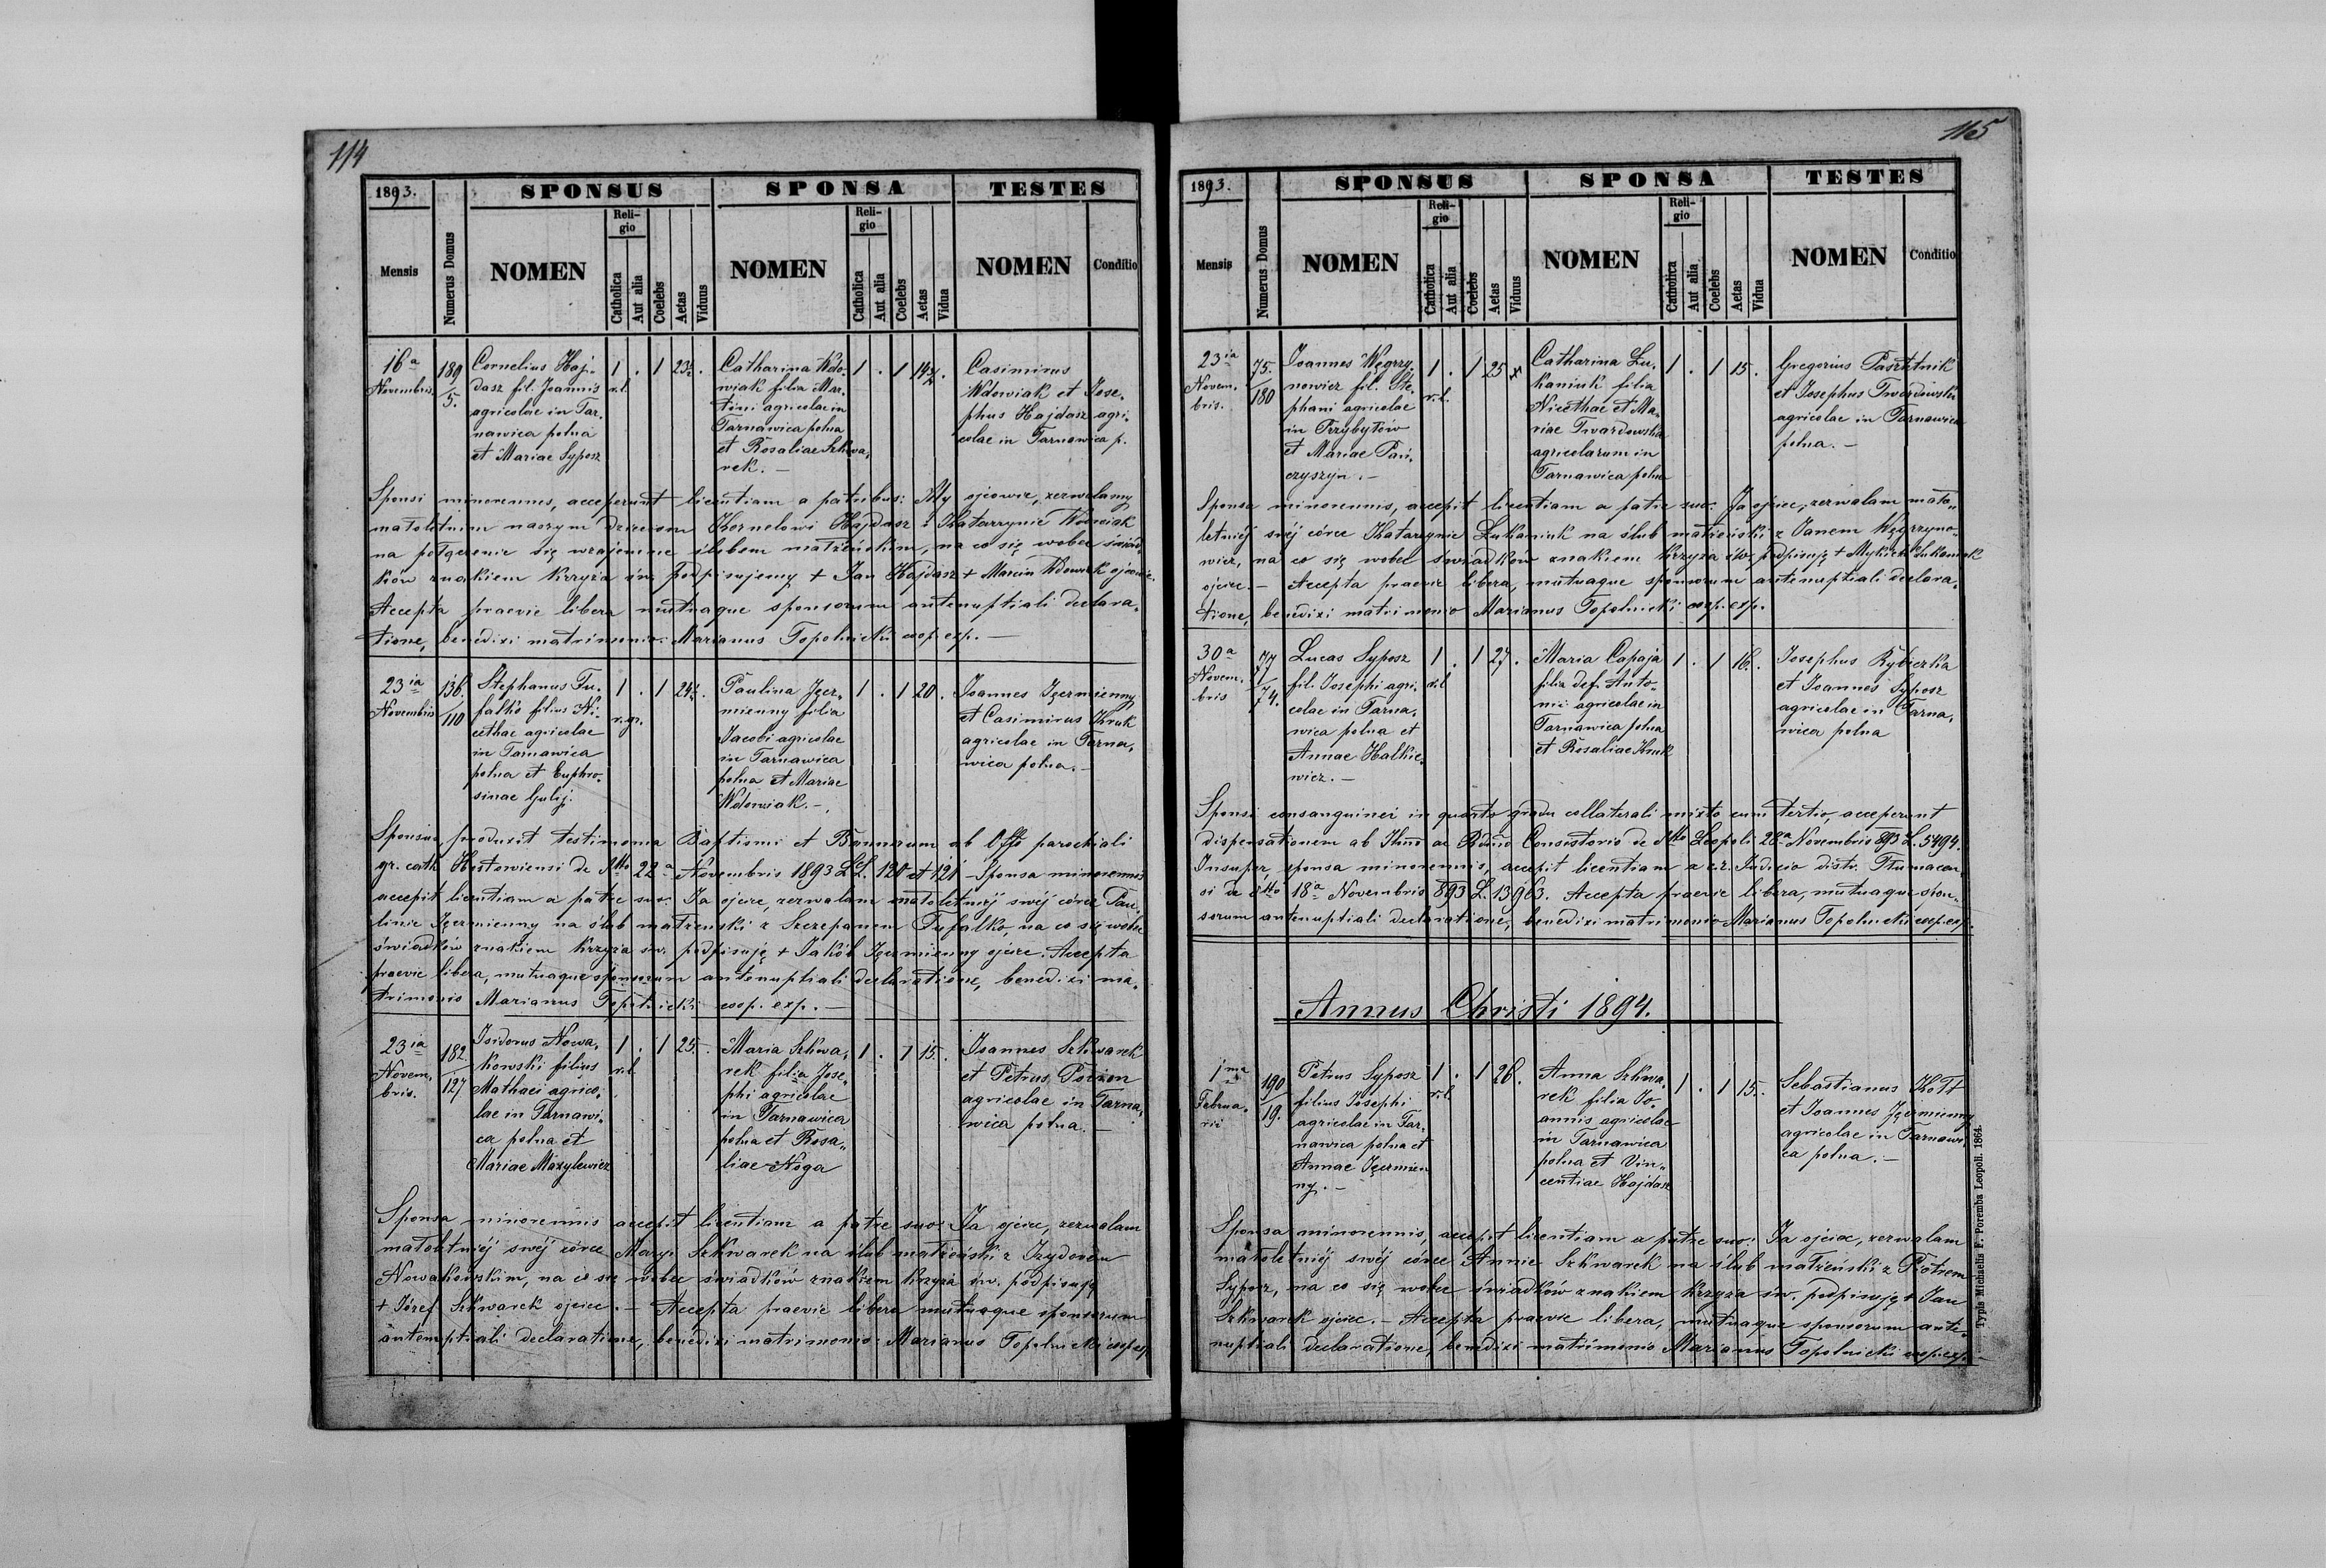 114
1893.
SPONSUS
SPONSA
TESTES
Mensis
Numerus Domus
NOMEN
Religio
Catholica
Aut alia
Coelebs
Aetas
Viduus
NOMEN
Religio
Catholica
Aut alia
Coelebs
Aetas
Vidua
NOMEN
Conditio
16a
Novembris
189
5.
Cornelius Haj-
dasz fil. Joannis
agricolae in Tar-
nawica polna
et Mariae Syposz
1 . 1 23½ .
r.l.
Catharina Wdo-
wiak filia Mar-
tini agricolae in
Tarnawica polna
et Rosaliae Szkwa-
rek. —
1 . 1 14¾ .
Casimirus
Wdowiak et Jose-
phus Hajdasz agri-
colae in Tarnawica p.
Sponsi minorennes, acceperunt licentiam a patribus: My ojcowie, zezwalamy
małoletnim naszym dzieciom Kornelowi Hajdasz i Katarzynie Wdowiak
na połączenie się wzajemne ślubem małżeńskim, na co się wobec świad-
ków znakiem krzyża św. podpisujemy + Jan Hajdasz + Marcin Wdowiak ojcowie.
Accepta praevie libera mutuaque sponsorum antenuptiali declara-
tione, benedixi matrimonio: Marianus Topolnicki coop. exp. —
23ia
Novembris
136.
110
Stephanus Fu-
falko filius Ni-
cethae agricolae
in Tarnawica
polna et Euphro-
sinae Gulij.
1 . 1 24½ .
r.gr.
Paulina Jęcz-
mienny filia
Jacobi agricolae
in Tarnawica
polna et Mariae
Wdowiak. —
1 . 1 20 .
Joannes Jęczmienny
et Casimirus Kruk
agricolae in Tarna-
wica polna. —
Sponsus produxit testimonia Baptismi et Bannorum ab Offo parochiali
gr. cath. Hostowiensi de dtto 22a Novembris 1893 LL. 120 et 121 — Sponsa minorennis
accepit licentiam a patre suo: Ja ojciec, zezwalam małoletniej swéj córce Pau-
linie Jęczmienny na ślub małżeński z Szczepanem Fufalko, na co się wobec
świadków znakiem krzyża św. podpisuję + Jakób Jęczmienny ojciec. Accepta
praevie libera, mutuaque sponsorum antenuptiali declaratione, benedixi ma-
trimonio Marianus Topolnicki coop. exp. —
23ia
Novem-
bris.
182.
127
Isidorus Nowa-
kowski filius
Mathaei agrico-
lae in Tarnawi-
ca polna et
Mariae Maxylewicz
1 . 1 25. .
r.l
Maria Szkwa-
rek filia Jose-
phi agricolae
in Tarnawica
polna et Rosa-
liae Noga
1 . 1 15. .
Joannes Szkwarek
et Petrus
agricolae in Tarna-
wica polna. —
Sponsa minorennis accepit licentiam a patre suo: Ja ojciec, zezwalam
małoletniéj swéj córce Maryi Szkwarek na ślub małżeński z Izydorem
Nowakowskim, na co się wobec świadków znakiem krzyża św. podpisuję
+ Józef Szkwarek ojciec. — Accepta praevie libera mutuaque sponsorum
antenuptiali declaratione, benedixi matrimonio: Marianus Topolnicki coop. exp.
115
1893.
SPONSUS
SPONSA
TESTES
Mensis
Numerus Domus
NOMEN
Religio
Catholica
Aut alia
Coelebs
Aetas
Viduus
NOMEN
Religio
Catholica
Aut alia
Coelebs
Aetas
Vidua
NOMEN
Conditio
23ia
Novem-
bris.
75.
180
Joannes Węgrzy-
nowicz fil. Ste-
phani agricolae
in Przybyłów
et Mariae Pań-
czyszyn. —
1 . 1 25
r.l.
Catharina Łu-
kaniuk filia
Nicethae et Ma-
riae Twardowska
agricolarum in
Tarnawica polna
1 . 1 15 .
Gregorius
et Josephus Twardowski
agricolae in Tarnawica
polna. —
Sponsa minorennis, accepit licentiam a patre suo: Ja ojciec, zezwalam mało-
letniéj swéj córce Katarzynie Łukaniuk na ślub małżeński z Janem Węgrzyno-
wicz, na co się wobec świadków znakiem krzyża św. podpisuję + Mykieta Łukaniuk
ojciec. — Accepta praevie libera, mutuaque sponsorum antenuptiali declara-
tione, benedixi matrimonio Marianus Topolnicki coop. exp.
30a
Novem-
bris
77
74.
Lucas Syposz
fil. Josephi agri-
colae in Tarna-
wica polna et
Annae Halkie-
wicz. —
1 . 1 27 .
r.l
Maria Capaja
filia def. Anto-
nii agricolae in
Tarnawica polna
et Rosaliae Kruk
1 . 1 16. .
Josephus Rybiczka
et Joannes Syposz
agricolae in Tarna-
wica polna
Sponsi consanguinei in quarto gradu collaterali mixto cum tertio, acceperunt
dispensationem ab Illmo ac Rdmo Consistorio de dtto Leopoli 28a Novembris 893 L. 5494.
Insuper, sponsa minorennis, accepit licentiam a c.r. Judicio distr. Tłumacen-
si de dtto 18a Novembris 893 L. 13963. Accepta praevie libera, mutuaque spon-
sorum antenuptiali declaratione, benedixi matrimonio Marianus Topolnicki coop. exp.
Annus Christi 1894.
1ma
Februa-
rii
190
19.
Petrus Syposz
filius Josephi
agricolae in Tar-
nawica polna et
Annae Jęczmien
ny. —
1 . 1 28 .
r.l.
Anna Szkwa-
rek filia Jo-
annis agricolae
in Tarnawica
polna et Vin-
centiae Hajdasz
1 . 1 15. .
Sebastianus Kott
et Joannes Jęczmienny
agricolae in Tarnawi-
ca polna. —
Sponsa minorennis, accepit licentiam a patre suo: Ja ojciec, zezwalam
małoletniéj swéj córce Annie Szkwarek na ślub małżeński z Piotrem
Syposz, na co się wobec świadków znakiem krzyża św. podpisuję + Jan
Szkwarek ojciec. — Accepta praevie libera, mutuaque sponsorum ante-
nuptiali declaratione, benedixi matrimonio Marianus Topolnicki coop. exp. —
Typis Michaelis F. Poremba Leopoli. 1864.